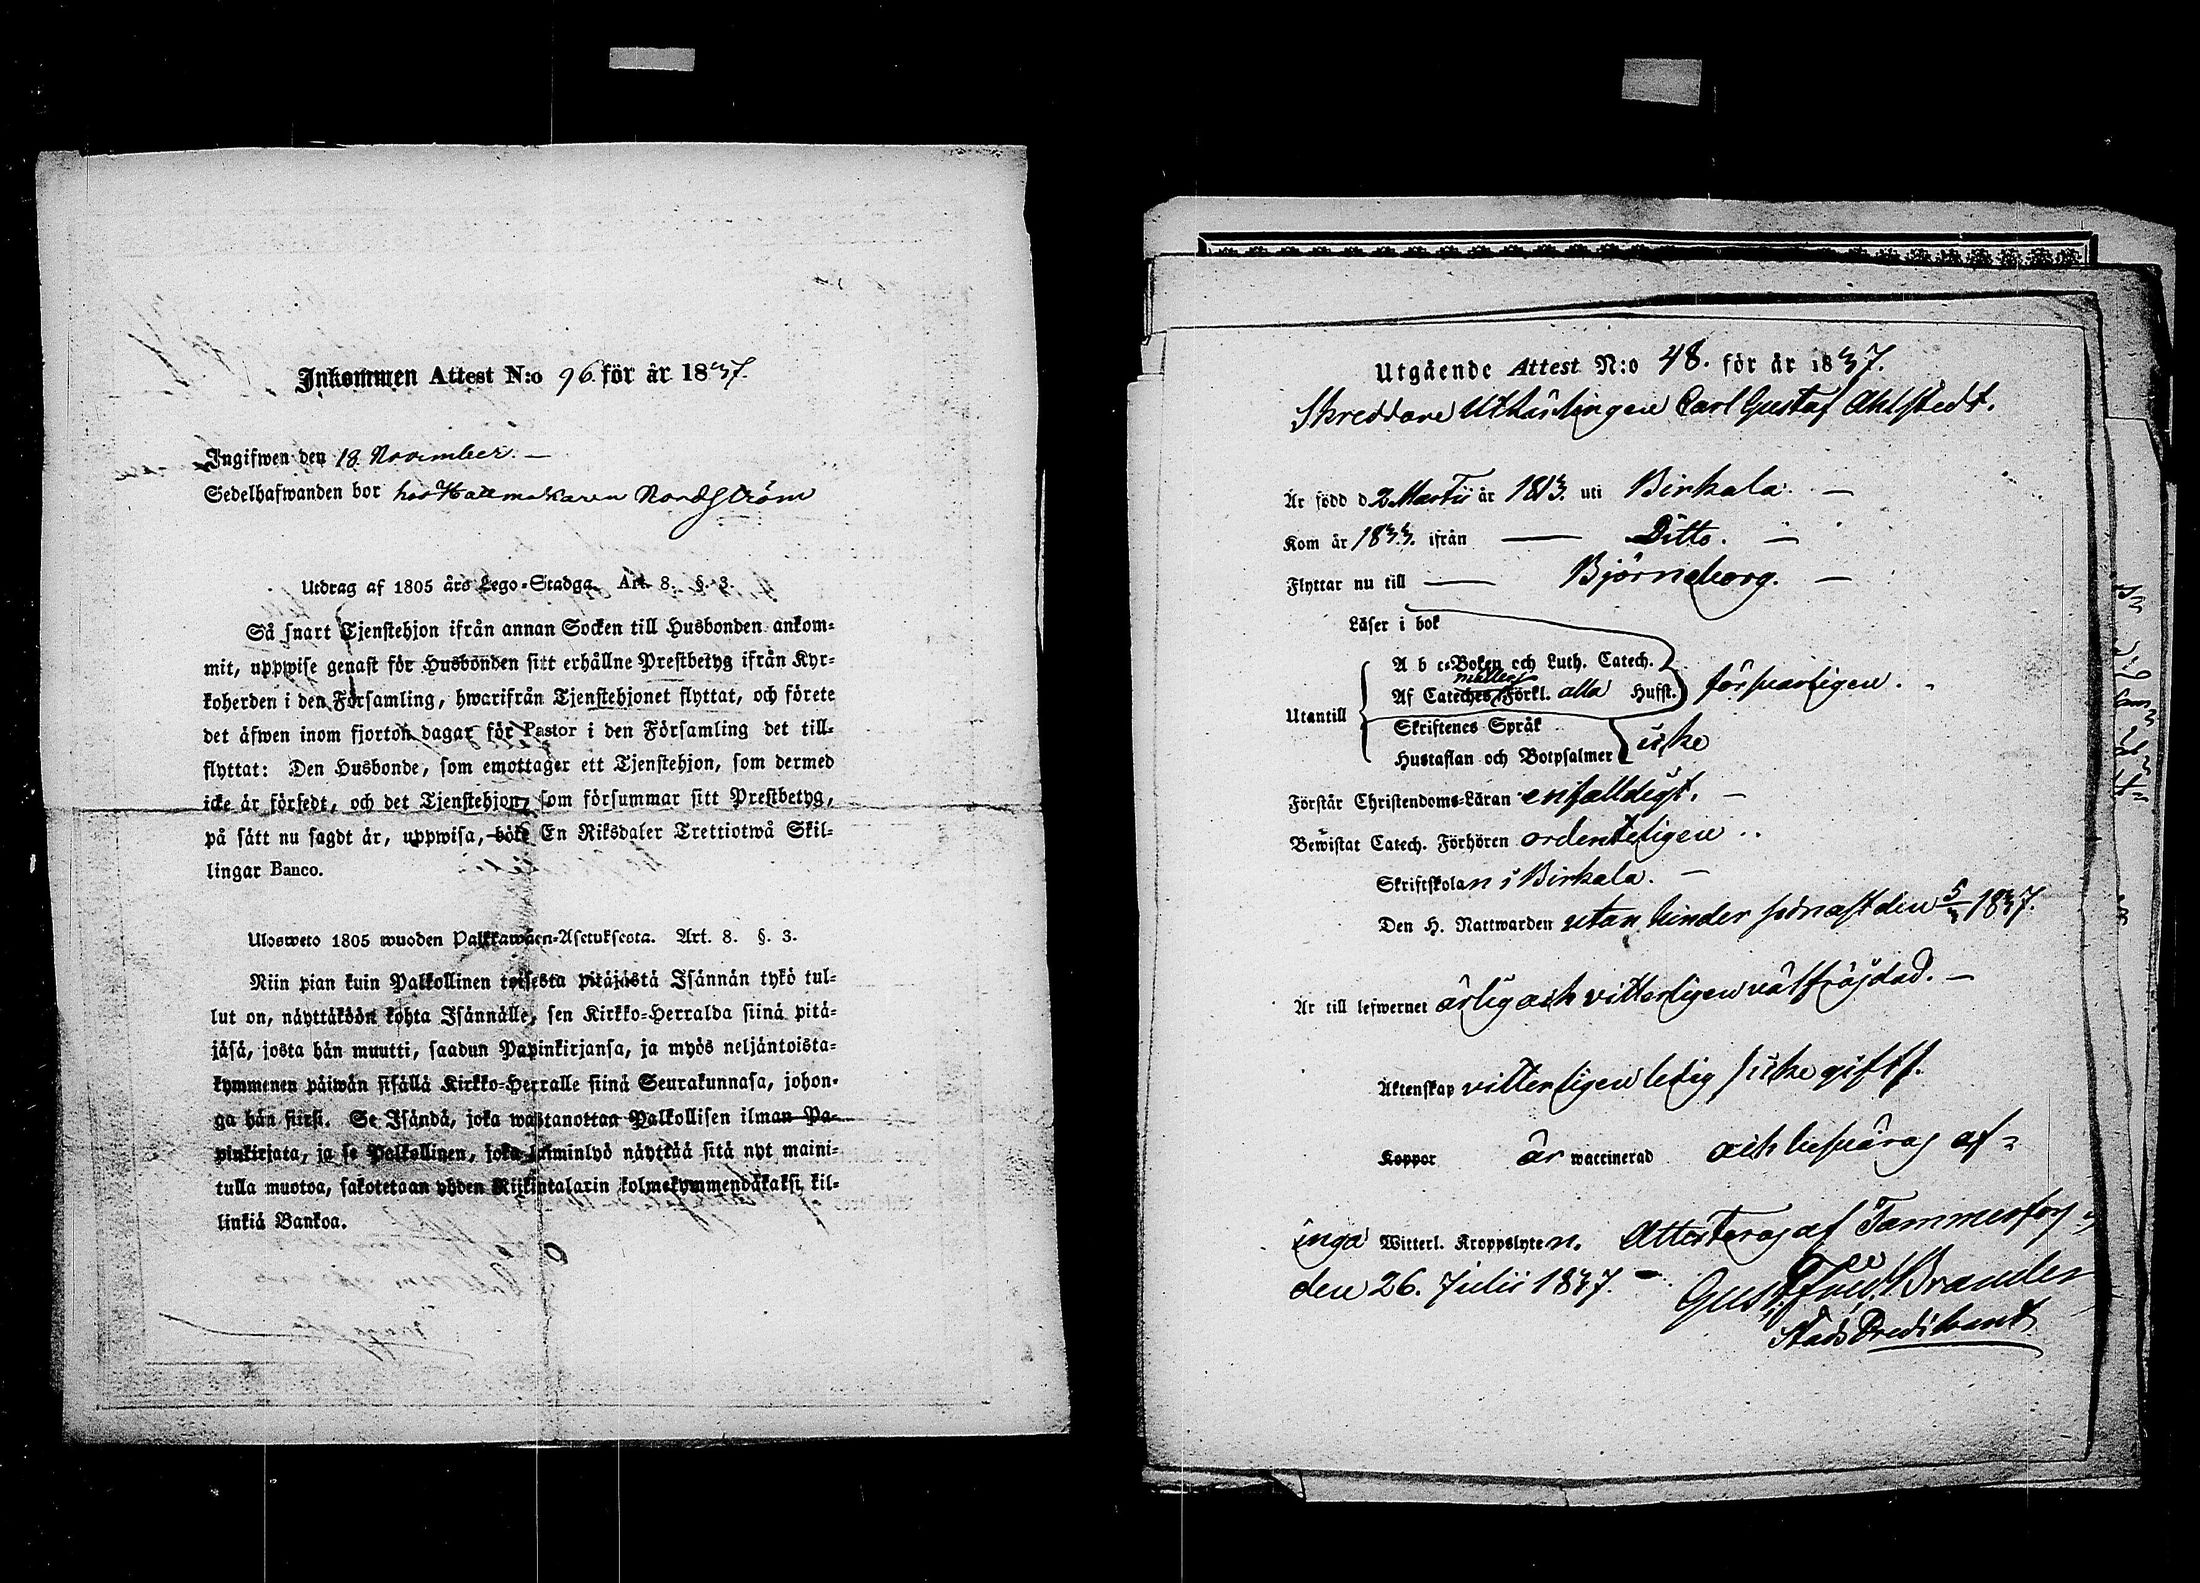 Inkommen Attest N:o 96. för år 1837.
Ingifwen den 18 November. —
Sedelhafwanden bor hos Hattmakaren Nordström
Utdrag af 1805 års Lego-Stadga. Art. 8. §. 3.
Så snart Tjenstehjon ifrån annan Socken till Husbonden ankom-
mit, uppwise genast för Husbonden sitt erhållne Prestbetyg ifrån Kyr-
koherden i den Församling, hwarifrån Tjenstehjonet flyttat, och förete
det äfwen inom fjorton dagar för Pastor i den Församling det till-
flyttat: Den Husbonde, som emottager ett Tjenstehjon, som dermed
icke är försedt, och det Tjenstehjon, som försummar sitt Prestbetyg,
på sätt nu sagdt är, uppwisa, böte En Riksdaler Trettiotwå Skil-
lingar Banco.
Ulosweto 1805 wuoden Palkkawäen-Asetuksesta. Art. 8. §. 3.
Niin pian kuin Palkollinen toisesta pitäjästä Isännän tykö tul-
lut on, näyttäköön kohta Isännälle, sen Kirkko-Herralda siinä pitä-
jäsä, josta hän muutti, saadun Papinkirjansa, ja myös neljäntoista-
kymmenen päiwän sisällä Kirkko-Herralle siinä Seurakunnasa, johon-
ga hän siirsi. Se Isändä, joka wastanottaa Palkollisen ilman Pa-
pinkirjata, ja se Palkollinen, joka laiminlyö näyttää sitä nyt maini-
tulla muotoa, sakotetaan yhden Rijkintalarin kolmekymmendäkaksi kil-
linkiä Bankoa.
Utgående Attest N:o 48. för år 1837.
Skreddare Utlärlingen Carl Gustaf Ahlstedt.
Är född d 2 Martii år 1813. uti Birkala. —
Kom år 1833. ifrån — Ditto. —
Flyttar nu till — Björneborg. —
Läser i bok
A b c-Boken och Luth. Catech.
mellers
Af Cateches Förkl. alla Husst. försvarligen.
Utantill
Skriftenes Språk
Hustaflan och Botpsalmer icke
Förstår Christendoms-Läran enfalldigt. —
Bewistat Catech. Förhören ordenteligen..
Skriftskolan i Birkala. —
Den H. Nattwarden utan hinder sednast den 5/3 1837.
Är till lefwernet ärlig och vitterligen välfräjdad. —
Äktenskap vitterligen ledig /: icke gift /.
Koppor är waccinerad och besväras af
inga Witterl. Kroppslyten. Attesteras af Tammerfors
den 26. Julii 1837. Brander
Stads Predikant